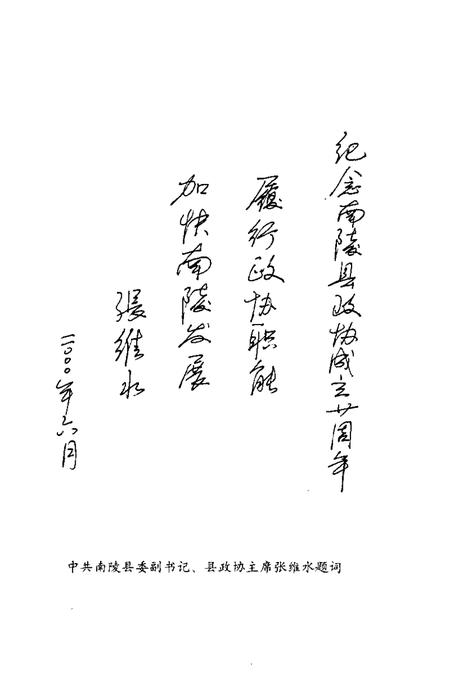 纪念南陵县政协成立廿周年
履行政协职能
加快南陵发展
張维水
二〇〇〇年六月
中共南陵县委副书记、县政协主席张维水题词